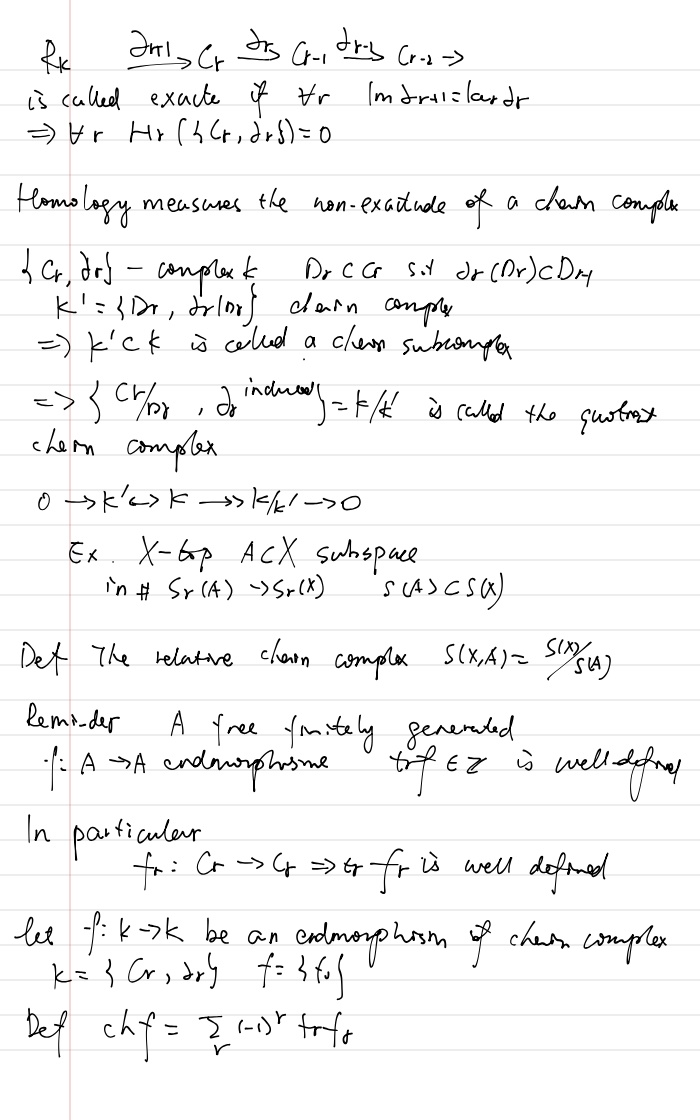 Rk ∂r+1→ Cr ∂r→ Cr-1 ∂r-1→ Cr-2 →
is called exacte if ∀r Im ∂r+1 = ker ∂r
=> ∀r Hr({Cr, ∂r}) = 0
Homology measures the non-exactude of a chain complex
{Cr, ∂r} - complex k Dr ⊂ Cr s.t ∂r(Dr) ⊂ Dr-1
k' = {Dr, ∂r|Dr} chain complex
=> k' ⊂ k is called a chain subcomplex
=> {Cr/Dr, ∂r induced} = k/k' is called the quotient
chain complex
0 → k' ↪ k ↠ k/k' → 0
Ex. X-top A⊂X subspace
in # Sr(A) → Sr(X) S(A) ⊂ S(X)
Def The relative chain complex S(X,A) = S(X)/S(A)
Reminder A free finitely generated
f: A → A endmorphisme trf ∈ Z is well-defined
In particular
fr: Cr → Cr => tr fr is well defined
let f: k → k be an endmorphism of chain complex
k = {Cr, ∂r} f = {fr}
Def chf = Σr (-1)^r trfr